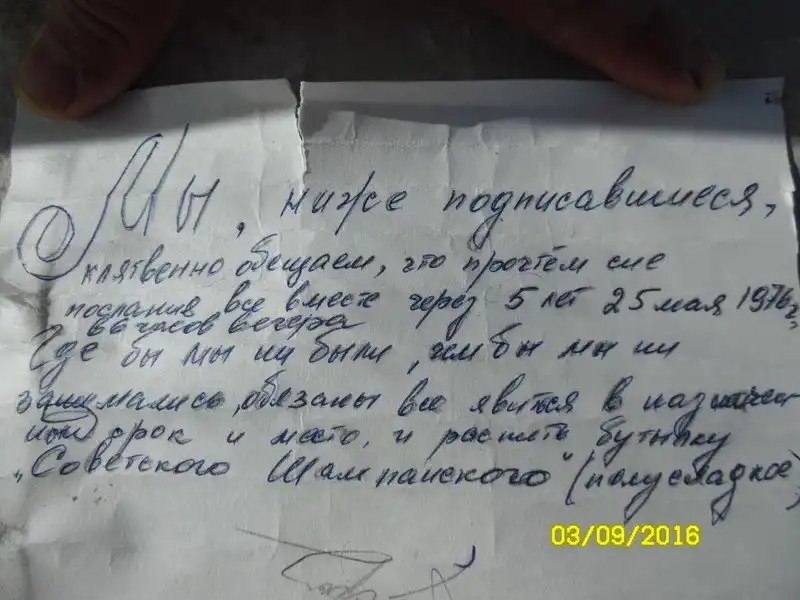 Мы, ниже подписавшиеся,
клятвенно обещаем, что прочтём сие
послание все вместе через 5 лет 25 мая 1976 г,
в 6 часов вечера
Где бы мы ни были, чем бы мы ни
занимались, обязаны все явиться в назначен
ный срок и место, и распить бутылку
„Советского Шампанского" (полусладкое)
03/09/2016